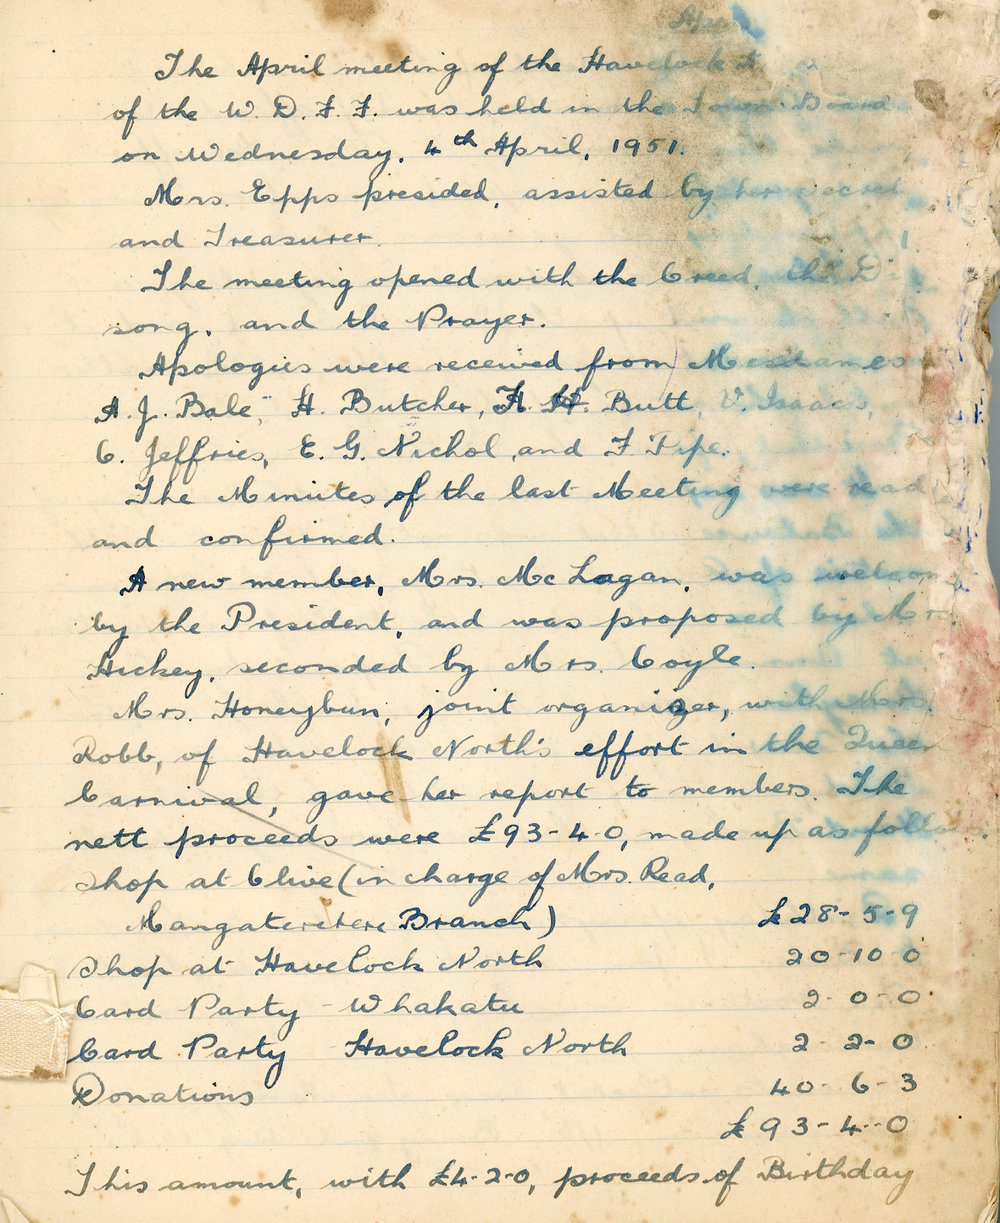 The April meeting of the Havelock N
of the W. D. F. F. was held in the Town Board
on Wednesday, 4th April, 1951.
Mrs. Epps presided, assisted by her
and Treasurer.
The meeting opened with the Creed, the
song, and the Prayer.
Apologies were received from Mesdames
A. J. Bale, H. Butcher, A. H. Butt, V. Isaacs,
C. Jeffries, E. G. Nichol, and F. Pipe.
The Minutes of the last Meeting were read
and confirmed.
A new member, Mrs. McLagan, was welcom
by the President, and was proposed by Mrs.
Hickey, seconded by Mrs. Coyle.
Mrs. Honeybun, joint organizer, with Mrs.
Robb, of Havelock North's effort in the Queen
Carnival, gave her report to members. The
nett proceeds were £93-4-0, made up as follows.
Shop at Clive (in charge of Mrs. Read,
Mangateretere Branch) £28-5-9
Shop at Havelock North 20-10-0
Card Party - Whakatu 2-0-0
Card Party Havelock North 2-2-0
Donations 40-6-3
£93-4-0
This amount, with £4-2-0, proceeds of Birthday